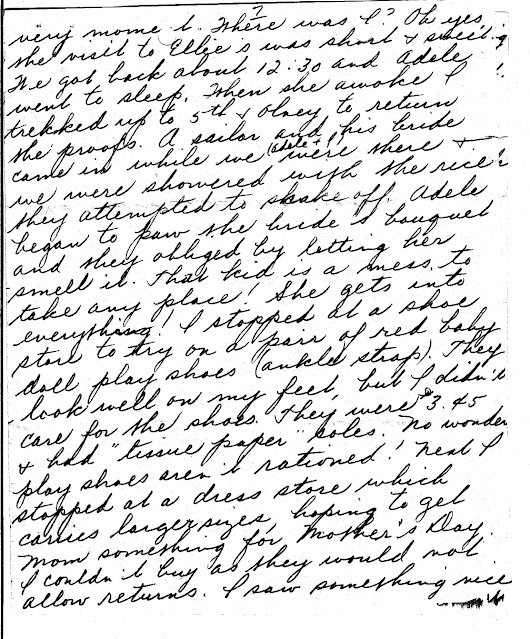 7
very moment. Where was I? Oh yes,
the visit to Ellie's was short & sweet.
We got back about 12:30 and Adele
went to sleep. When she awoke I
trekked up to 5th & Olney to return
the proofs. A sailor and his bride
came in while we (adele + I) were there &
we were showered with the rice
they attempted to shake off. Adele
began to paw the bride's bouquet
and they obliged by letting her
smell it. That kid is a mess to
take any place! She gets into
everything! I stopped at a shoe
store to try on a pair of red baby
doll play shoes (ankle strap). They
look well on my feet, but I didn't
care for the shoes. They were $3.45
& had "tissue paper" soles. No wonder
play shoes aren't rationed! Next I
stopped at a dress store which
carries larger sizes, hoping to get
Mom something for Mother's Day.
I couldn't buy as they would not
allow returns. I saw something nice